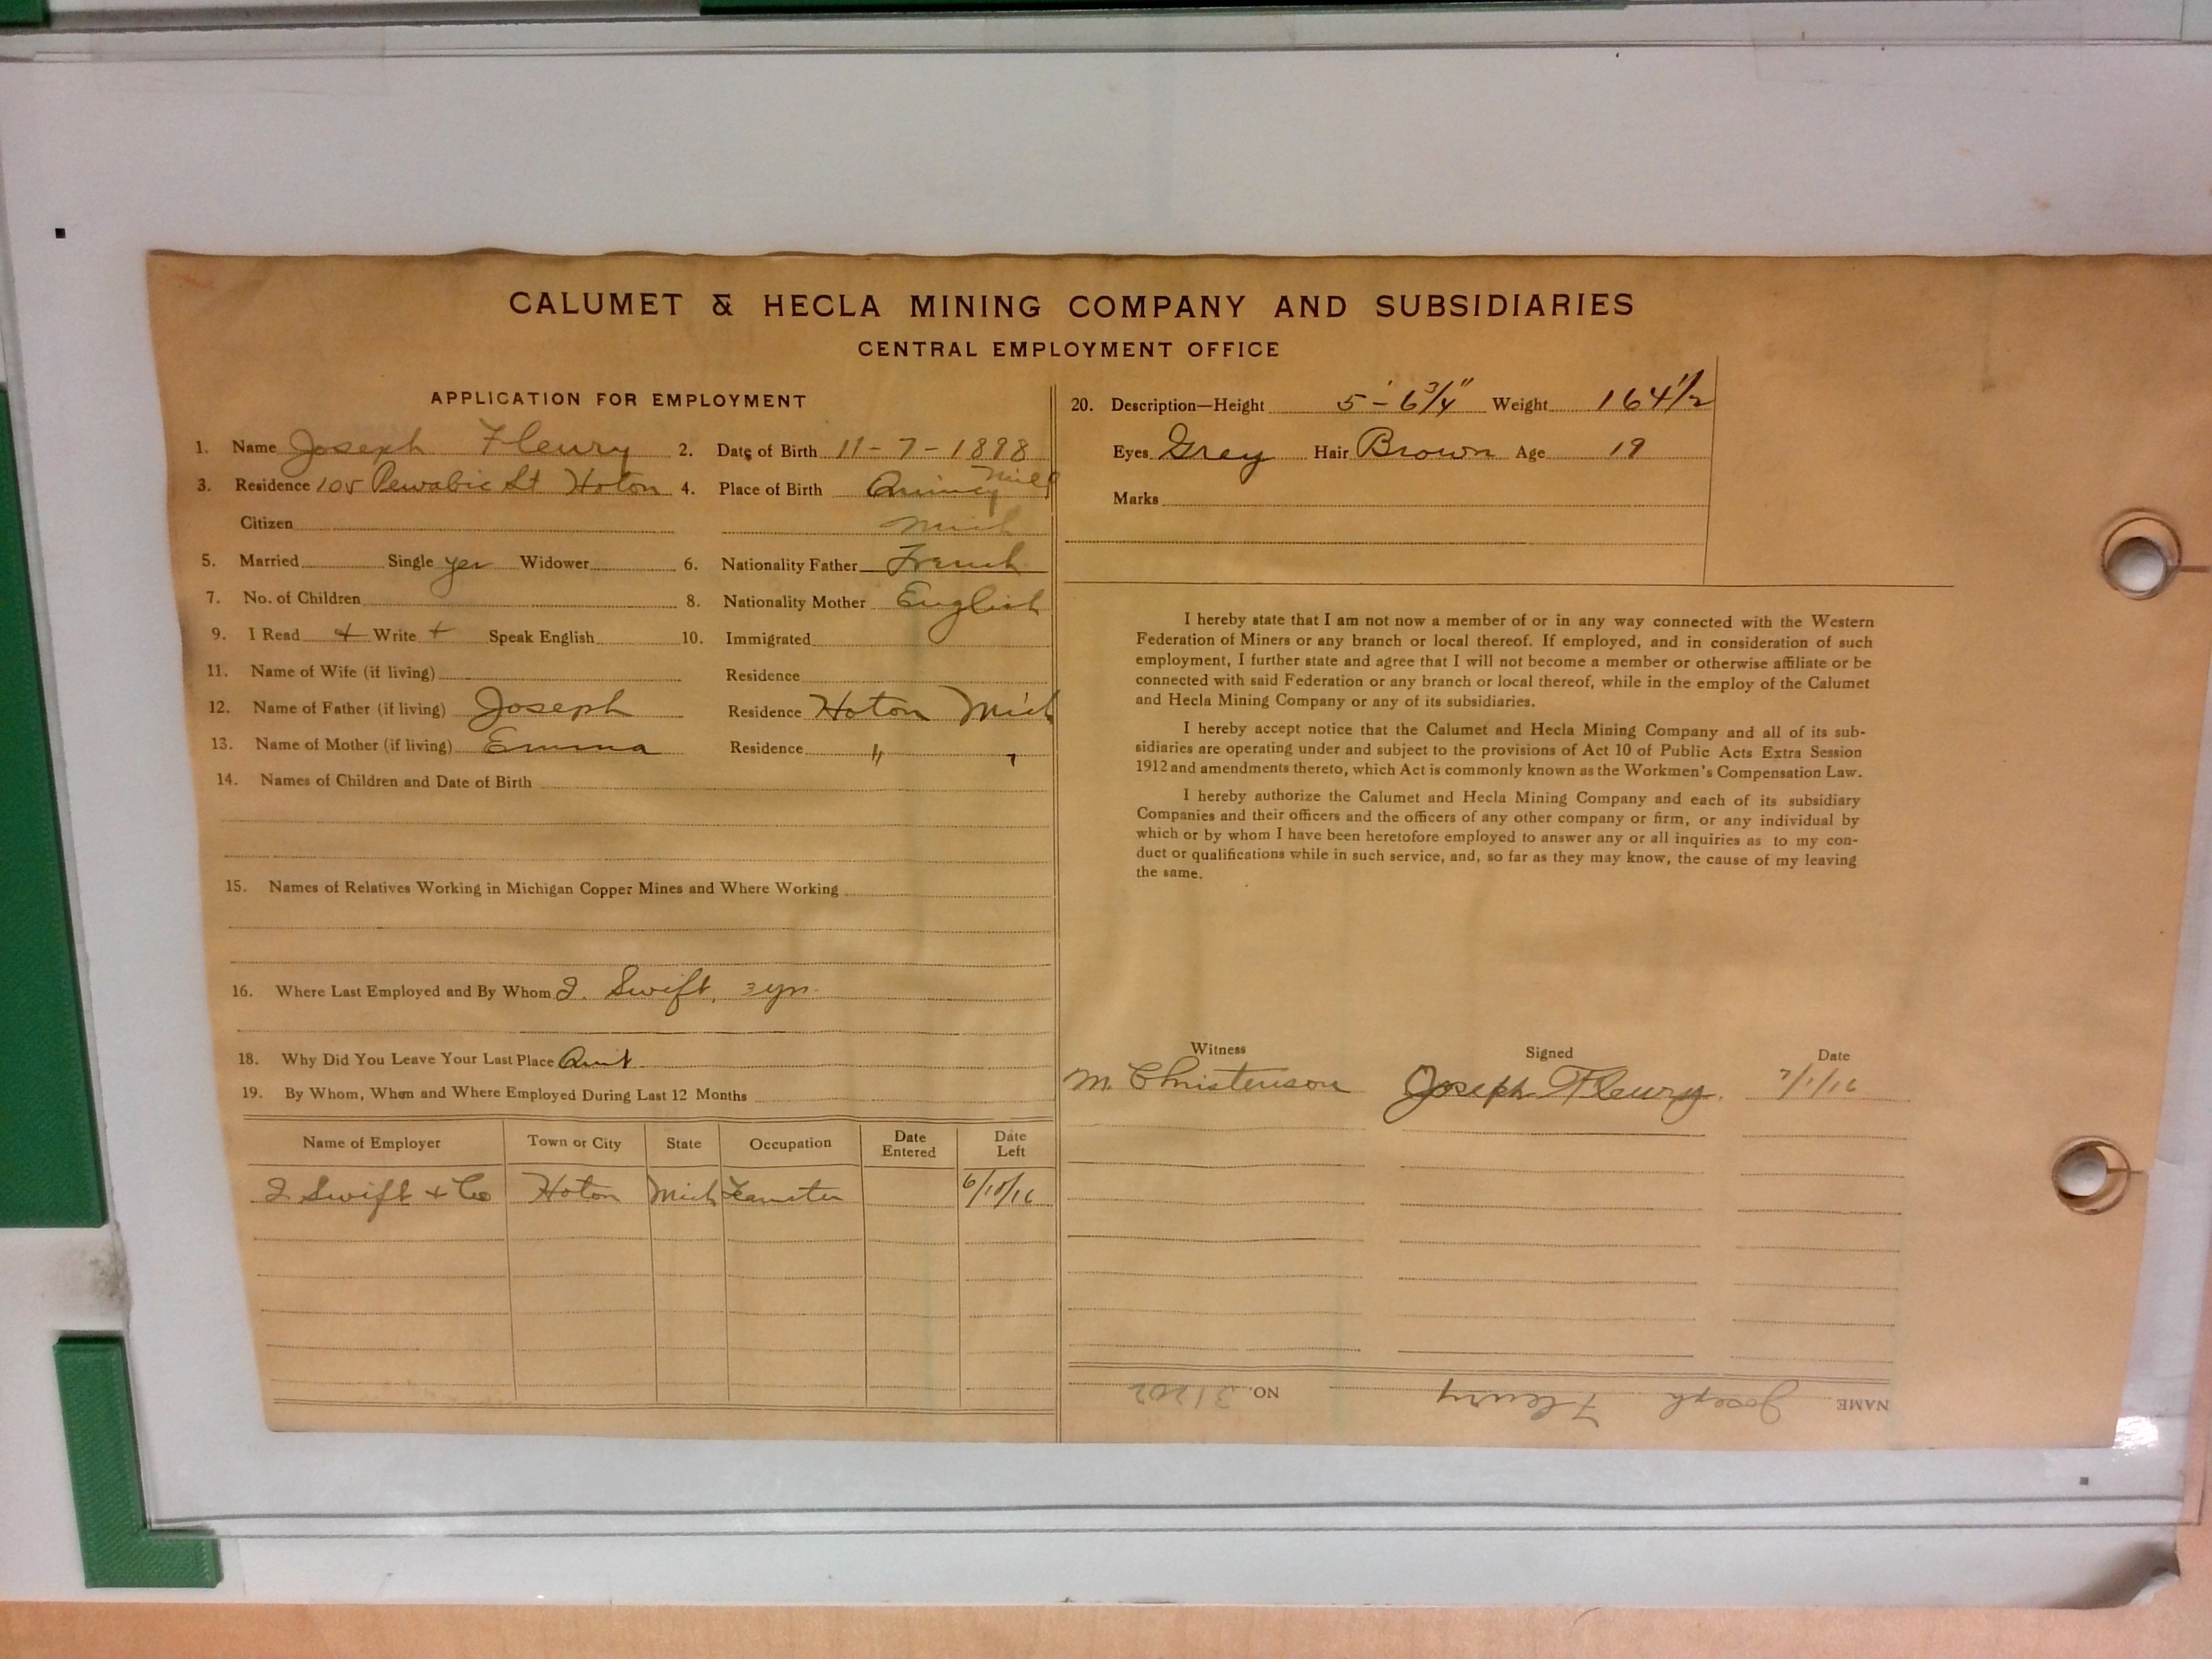 CALUMET & HECLA MINING COMPANY AND SUBSIDIARIES
CENTRAL EMPLOYMENT OFFICE
APPLICATION FOR EMPLOYMENT
1. Name Joseph Fleury 2. Date of Birth 11-7-1898
3. Residence 105 Pewabic St Hoton 4. Place of Birth Quincy Mill
Citizen Mich
5. Married Single yes Widower 6. Nationality Father French
7. No. of Children 8. Nationality Mother English
9. I Read + Write + Speak English 10. Immigrated
11. Name of Wife (if living) Residence
12. Name of Father (if living) Joseph Residence Hoton Mich
13. Name of Mother (if living) Emma Residence " "
14. Names of Children and Date of Birth
15. Names of Relatives Working in Michigan Copper Mines and Where Working
16. Where Last Employed and By Whom I. Swift, 3 yrs.
18. Why Did You Leave Your Last Place Quit
19. By Whom, When and Where Employed During Last 12 Months
Name of Employer Town or City State Occupation Date Entered Date Left
I Swift + Co Hoton Mich Teamster 6/10/16
20. Description—Height 5'-6 3/4" Weight 164 1/2
Eyes Grey Hair Brown Age 19
Marks
I hereby state that I am not now a member of or in any way connected with the Western
Federation of Miners or any branch or local thereof. If employed, and in consideration of such
employment, I further state and agree that I will not become a member or otherwise affiliate or be
connected with said Federation or any branch or local thereof, while in the employ of the Calumet
and Hecla Mining Company or any of its subsidiaries.
I hereby accept notice that the Calumet and Hecla Mining Company and all of its sub-
sidiaries are operating under and subject to the provisions of Act 10 of Public Acts Extra Session
1912 and amendments thereto, which Act is commonly known as the Workmen's Compensation Law.
I hereby authorize the Calumet and Hecla Mining Company and each of its subsidiary
Companies and their officers and the officers of any other company or firm, or any individual by
which or by whom I have been heretofore employed to answer any or all inquiries as to my con-
duct or qualifications while in such service, and, so far as they may know, the cause of my leaving
the same.
Witness Signed Date
M. Christenson Joseph Fleury. 7/1/16
NAME Joseph Fleury NO. 31202